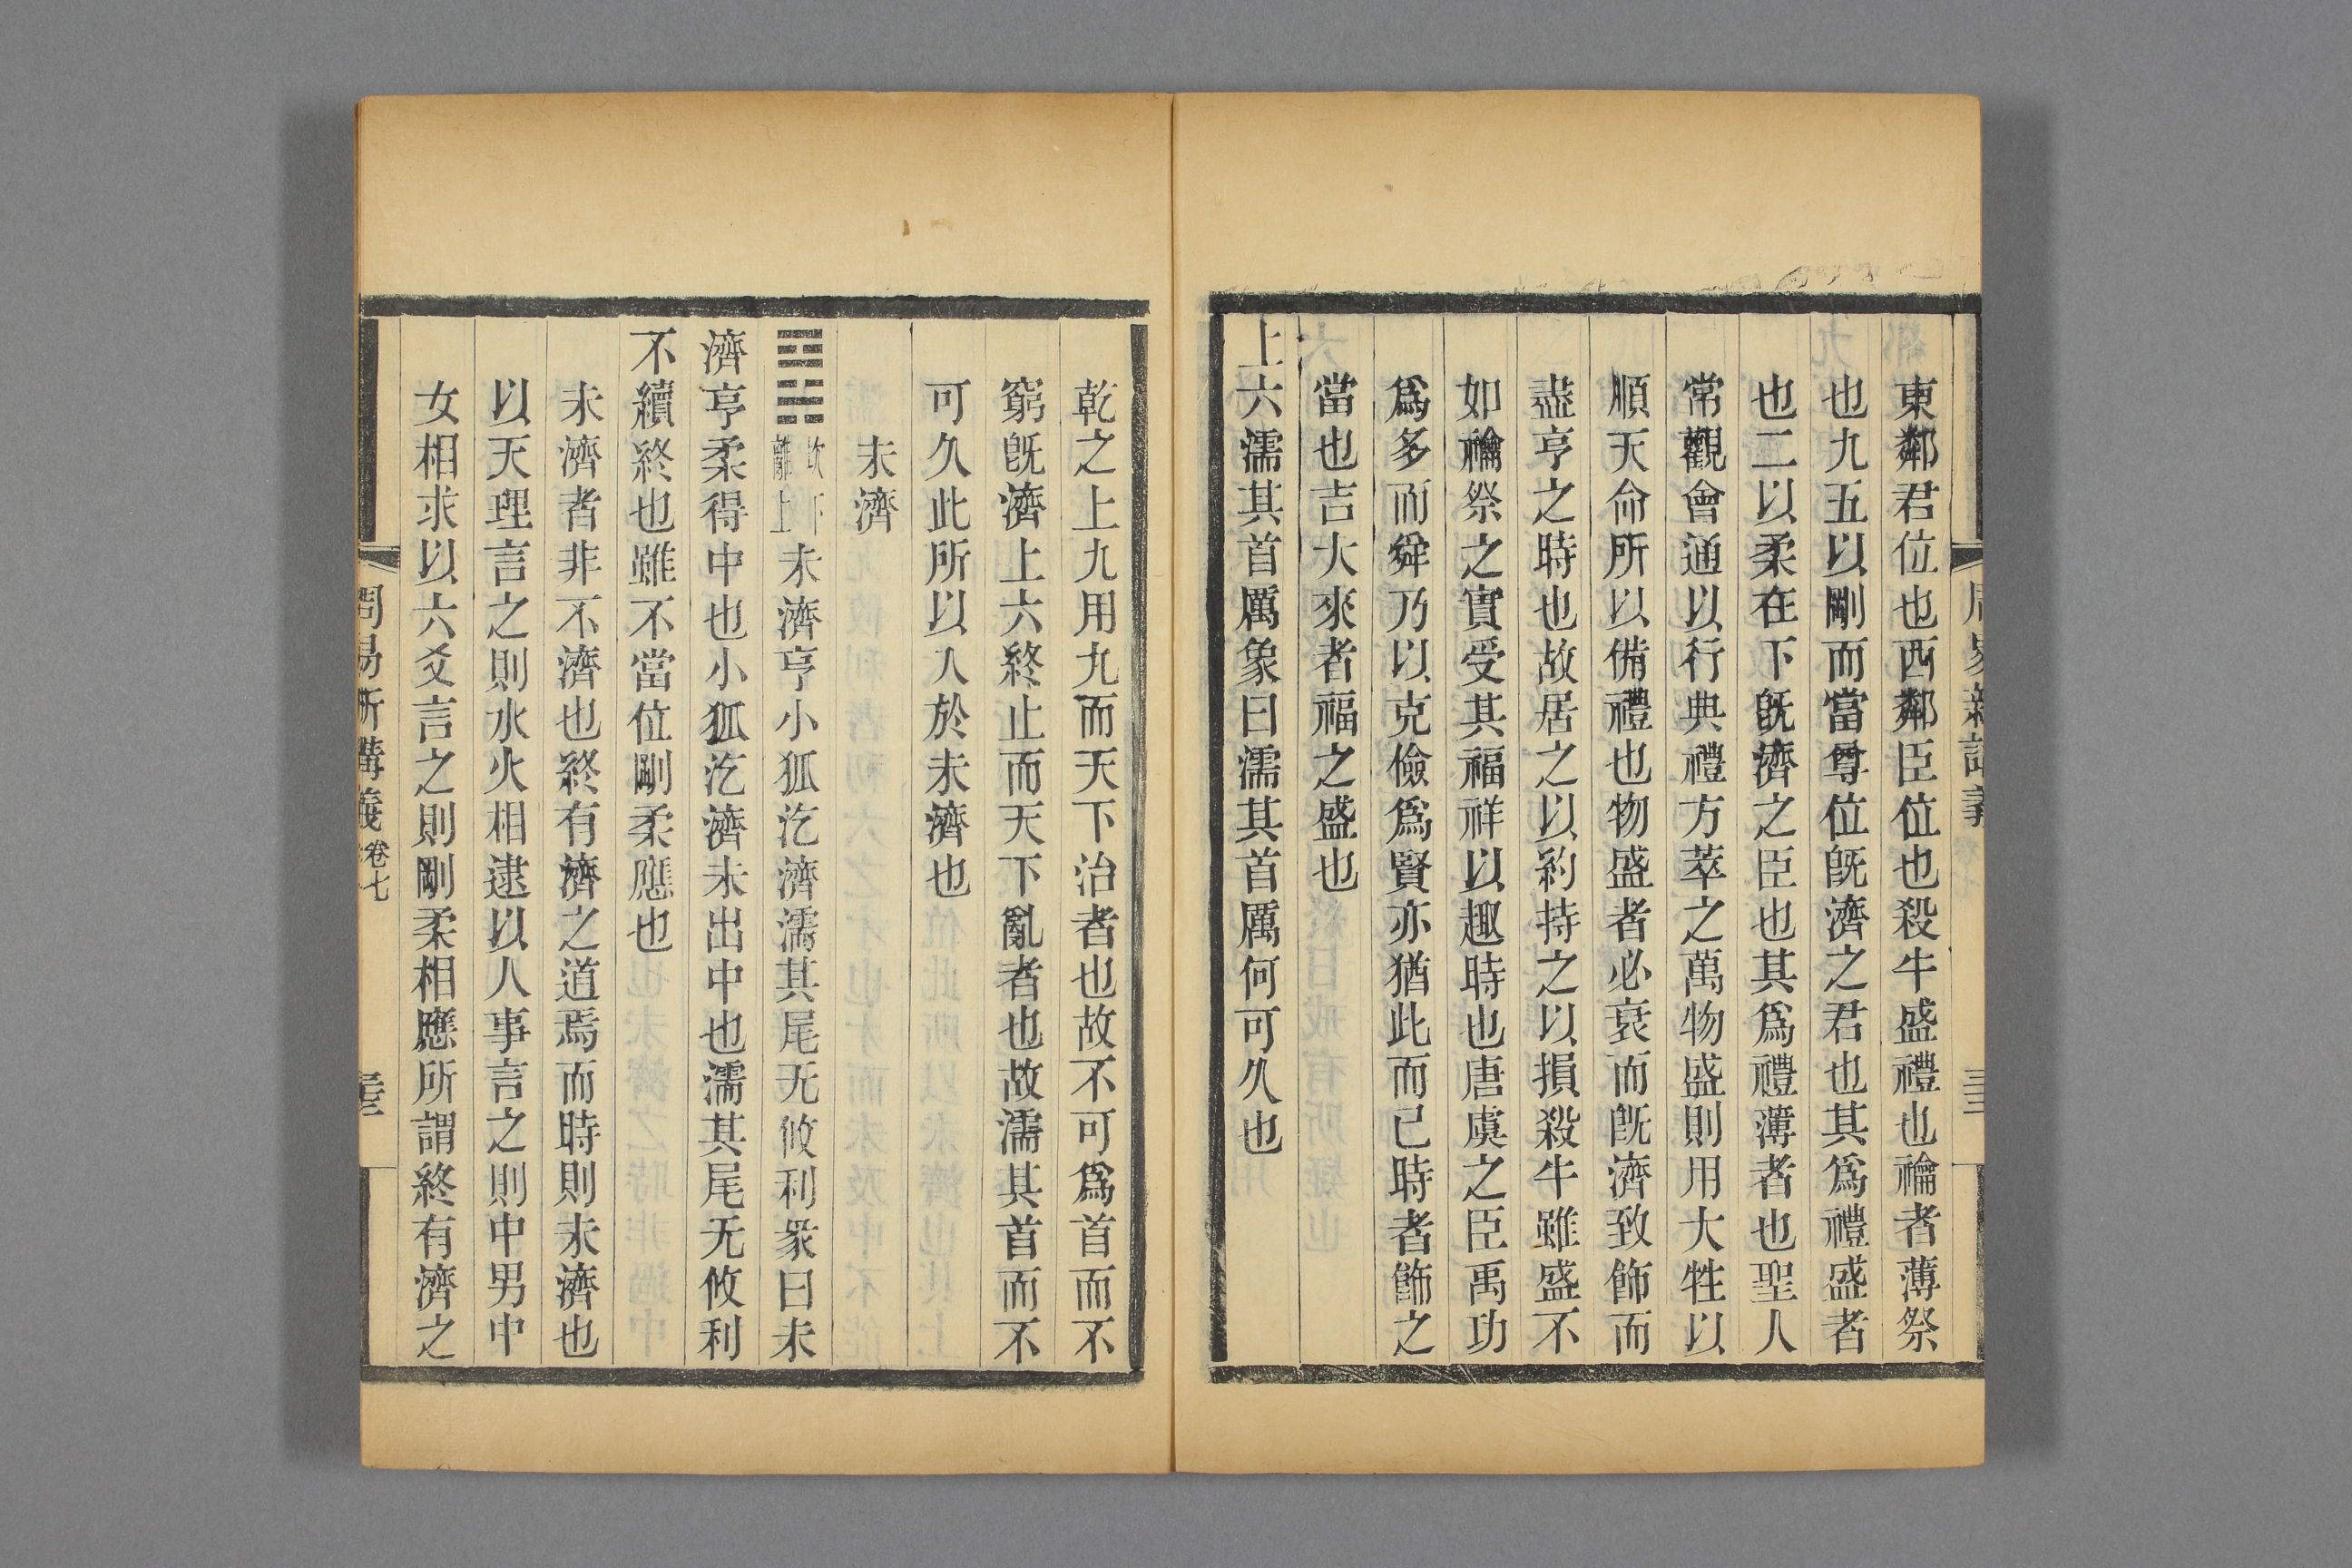 東鄰君位也西鄰臣位也殺牛盛禮也禴者薄祭
也九五以剛而當尊位旣濟之君也其爲禮盛者
也二以柔在下旣濟之臣也其爲禮薄者也聖人
常觀會通以行典禮方萃之萬物盛則用大牲以
順天命所以備禮也物盛者必衰而旣濟致飾而
盡亨之時也故居之以約持之以損殺牛雖盛不
如禴祭之實受其福祥以趣時也唐虞之臣禹功
爲多而舜乃以克儉爲賢亦猶此而已時者飾之
當也吉大來者福之盛也
上六濡其首厲象曰濡其首厲何可久也
乾之上九用九而天下治者也故不可爲首而不
窮旣濟上六終止而天下亂者也故濡其首而不
可久此所以入於未濟也
未濟
䷿
坎下
離上
未濟亨小狐汔濟濡其尾无攸利彖曰未
濟亨柔得中也小狐汔濟未出中也濡其尾无攸利
不續終也雖不當位剛柔應也
未濟者非不濟也終有濟之道焉而時則未濟也
以天理言之則水火相逮以人事言之則中男中
女相求以六爻言之則剛柔相應所謂終有濟之
周易新講義
卷七